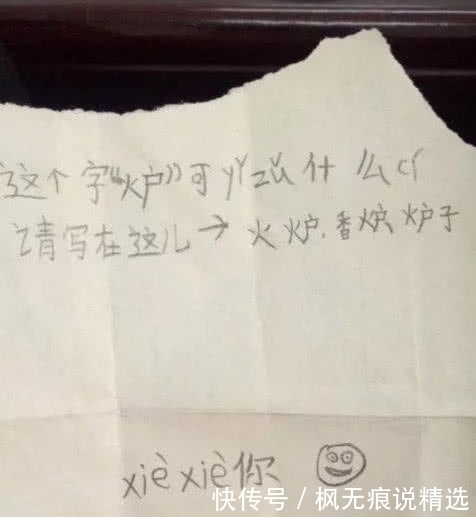 这个字“炉”可yǐzǔ什么cí
请写在这儿→火炉、香炉、炉子
xiè xiè你
快传号/枫无痕说精选